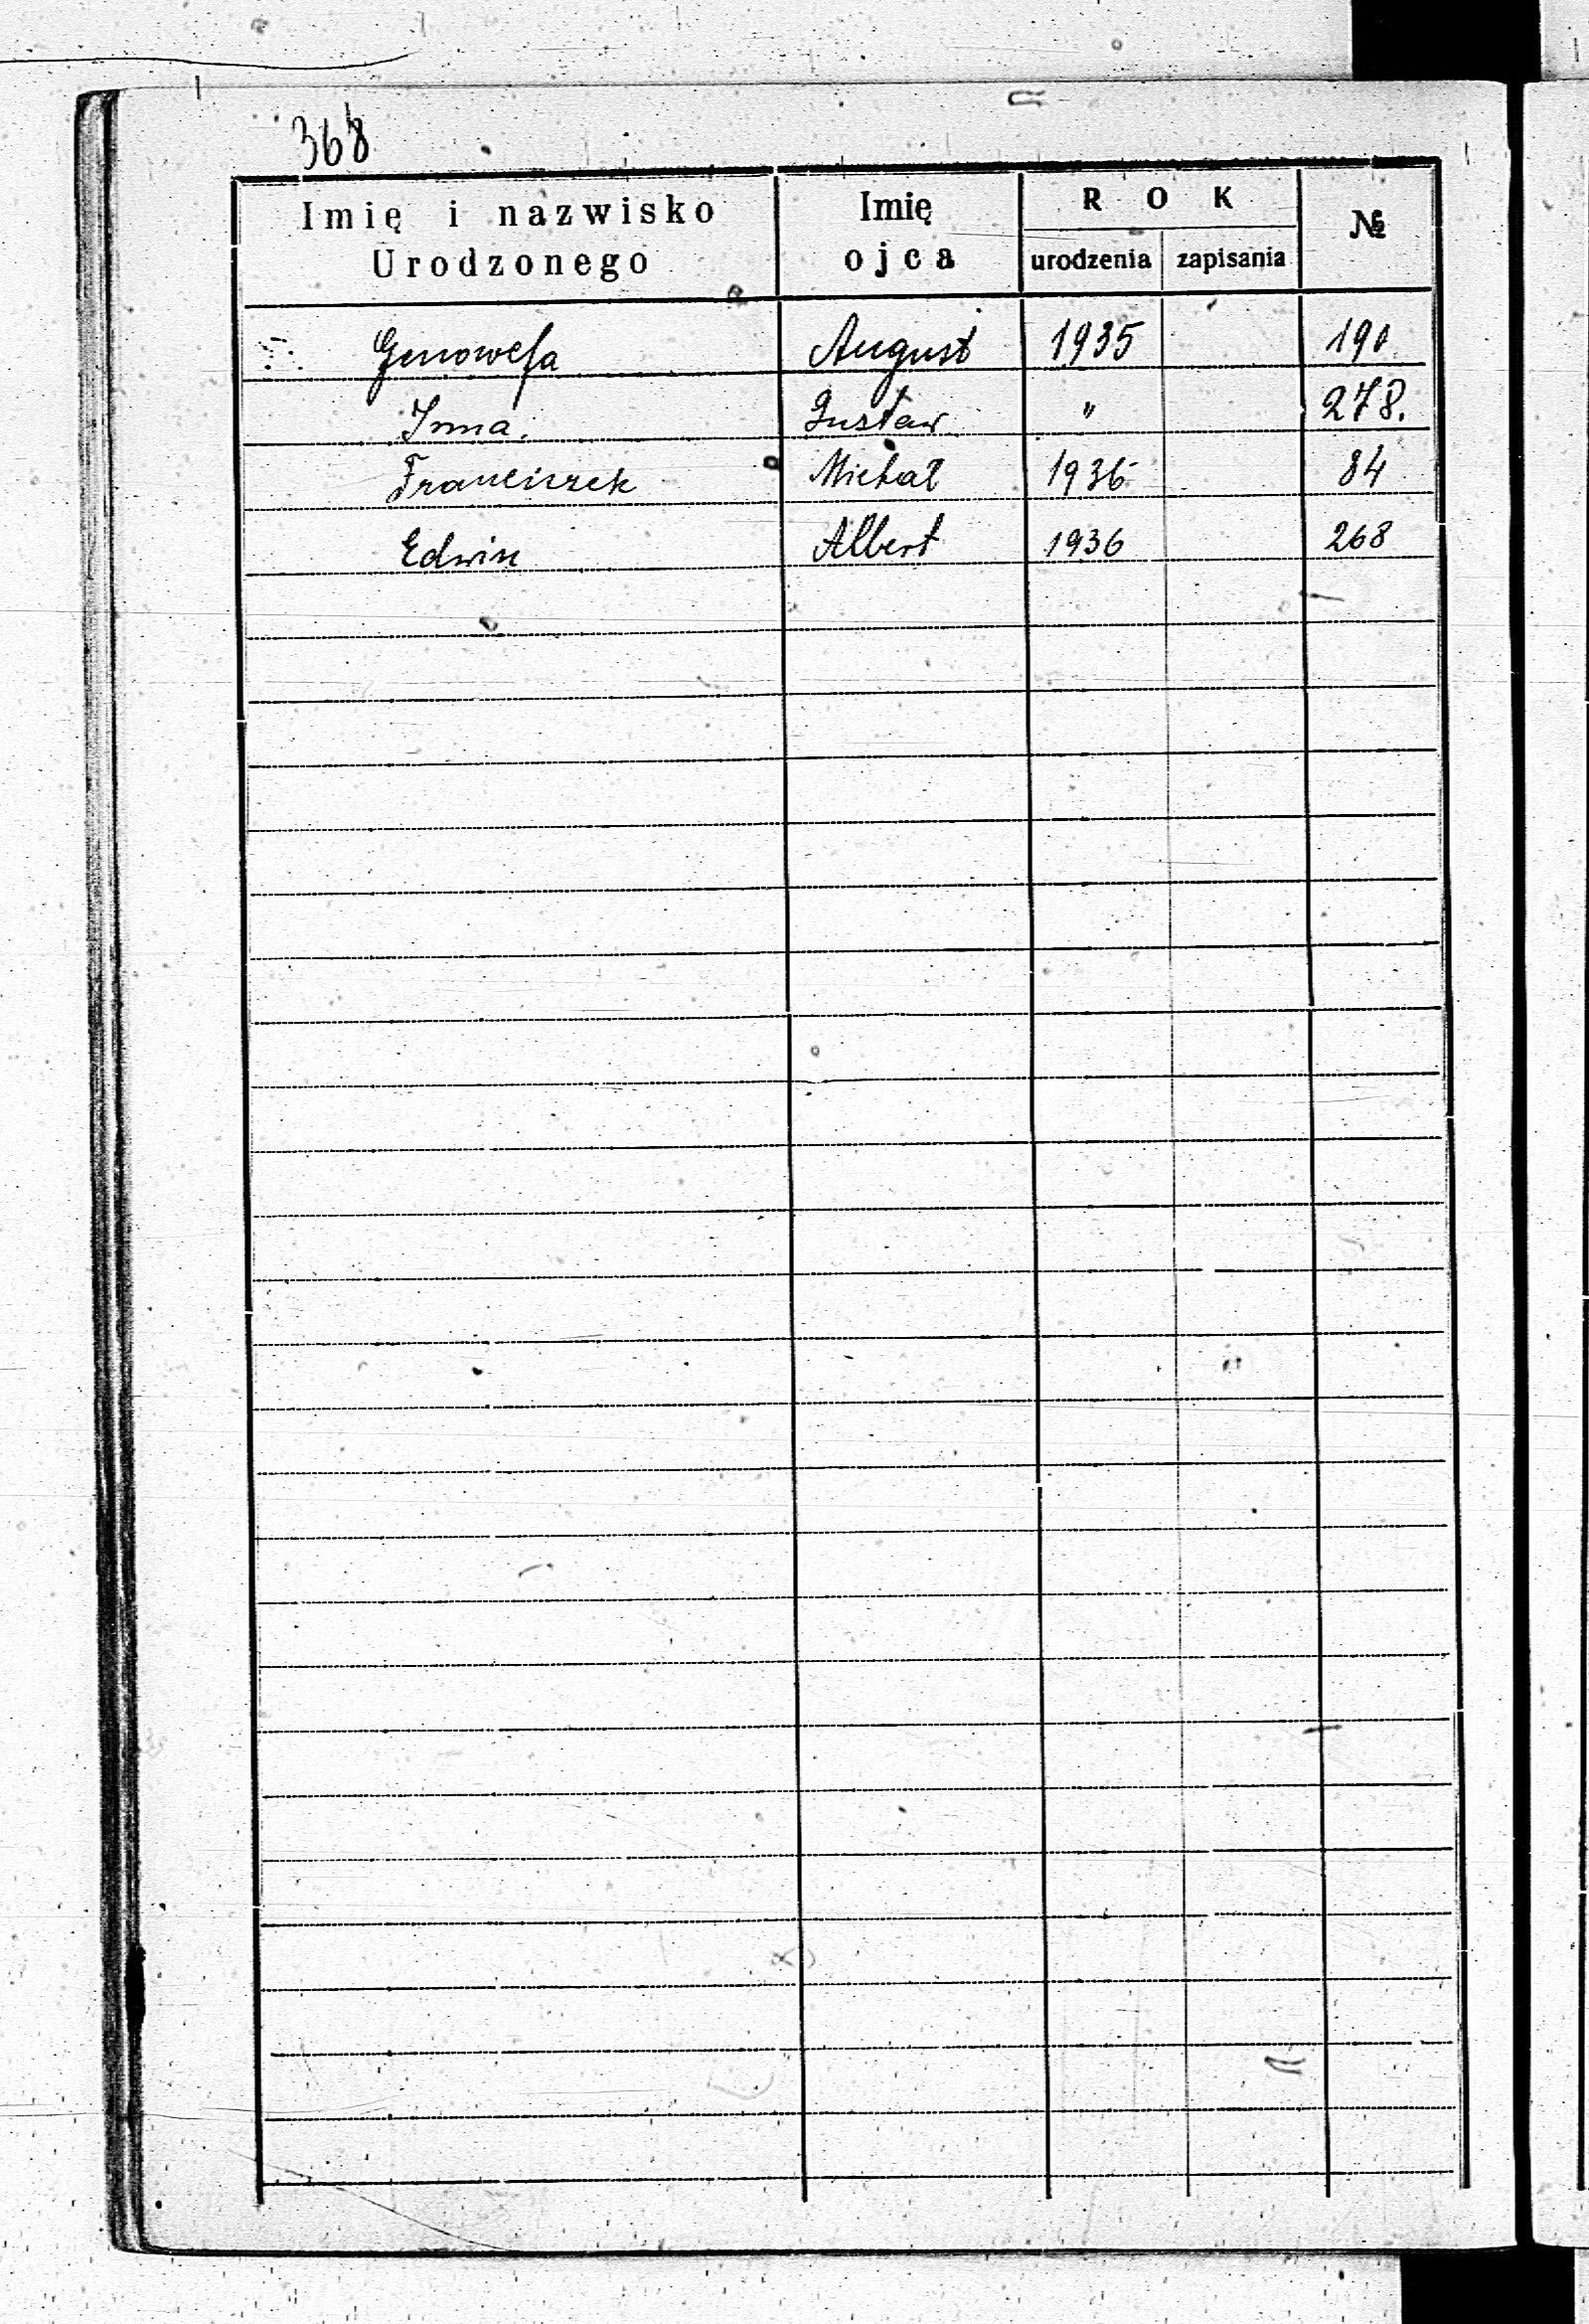 368
Imię i nazwisko Urodzonego | Imię ojca | ROK urodzenia | zapisania | №
Genowefa | August | 1935 | | 190
Irma. | Gustaw | " | | 278.
Franciszek | Michał | 1936 | | 84
Edwin | Albert | 1936 | | 268